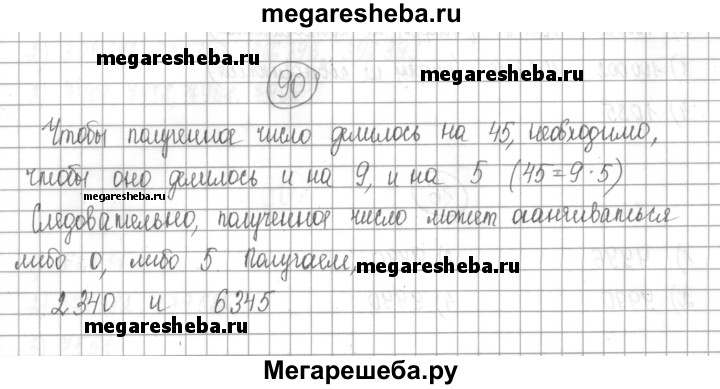 megaresheba.ru
megaresheba.ru
megaresheba.ru
90
Чтобы полученное число делилось на 45, необходимо,
чтобы оно делилось и на 9, и на 5 (45=9·5)
megaresheba.ru
Следовательно, полученное число может оканчиваться
либо 0, либо 5. Получаем,
megaresheba.ru
2340 и 6345
megaresheba.ru
Мегарешеба.ру